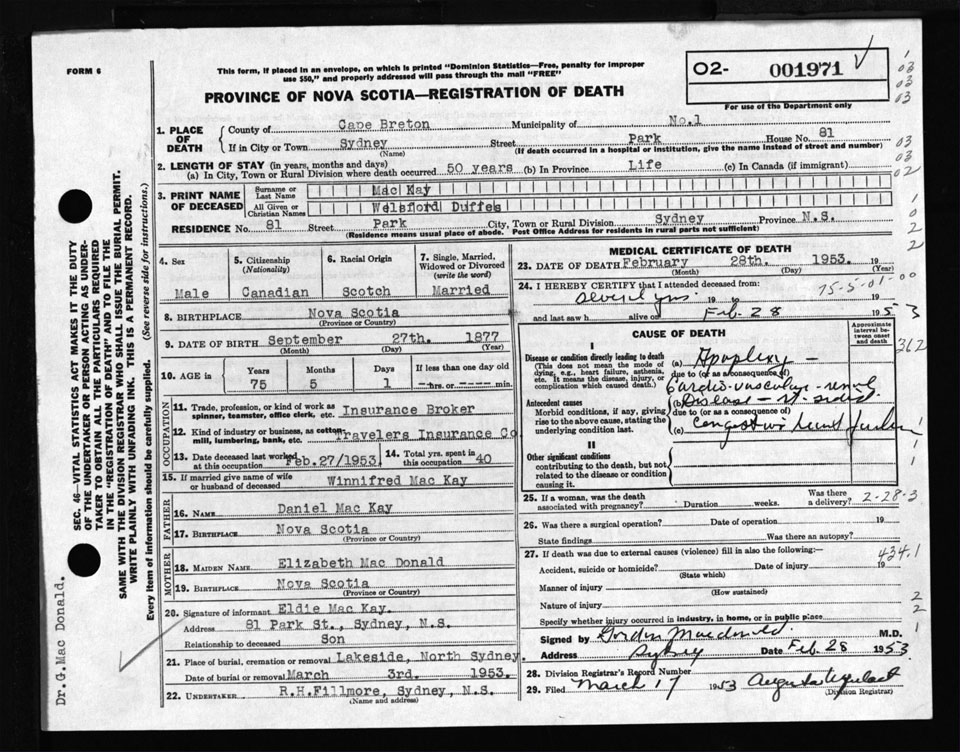 FORM 6
This form, if placed in an envelope, on which is printed "Dominion Statistics—Free, penalty for improper
use $50," and properly addressed will pass through the mail "FREE"
PROVINCE OF NOVA SCOTIA—REGISTRATION OF DEATH
O2- 001971
For use of the Department only
1. PLACE OF DEATH
County of Cape Breton Municipality of No.1
If in City or Town Sydney Street Park House No. 81
(Name) (If death occurred in a hospital or institution, give the name instead of street and number)
2. LENGTH OF STAY (in years, months and days)
(a) In City, Town or Rural Division where death occurred 50 years (b) In Province Life (c) In Canada (if immigrant)
3. PRINT NAME OF DECEASED
Surname or Last Name Mac Kay
All Given or Christian Names Welsford Duffes
RESIDENCE No. 81 Street Park City, Town or Rural Division Sydney Province N.S.
(Residence means usual place of abode. Post Office Address for residents in rural parts not sufficient)
4. Sex
Male
5. Citizenship
(Nationality)
Canadian
6. Racial Origin
Scotch
7. Single, Married, Widowed or Divorced
(write the word)
Married
8. BIRTHPLACE Nova Scotia
(Province or Country)
9. DATE OF BIRTH September 27th. 1877
(Month) (Day) (Year)
10. AGE in
Years Months Days If less than one day old
75 5 1 --hrs. or ----- min.
OCCUPATION
11. Trade, profession, or kind of work as spinner, teamster, office clerk, etc. Insurance Broker
12. Kind of industry or business, as cotton-mill, lumbering, bank, etc. Travelers Insurance Co
13. Date deceased last worked at this occupation Feb.27/1953.
14. Total yrs. spent in this occupation 40
15. If married give name of wife or husband of deceased Winnifred Mac Kay
FATHER
16. NAME Daniel Mac Kay
17. BIRTHPLACE Nova Scotia
(Province or Country)
MOTHER
18. MAIDEN NAME Elizabeth Mac Donald
19. BIRTHPLACE Nova Scotia
(Province or Country)
20. Signature of informant Eldie Mac Kay.
Address 81 Park St., Sydney, N.S.
Relationship to deceased Son
21. Place of burial, cremation or removal Lakeside, North Sydney.
Date of burial or removal March 3rd. 1953.
22. UNDERTAKER R.H.Fillmore, Sydney, N.S.
(Name and address)
MEDICAL CERTIFICATE OF DEATH
23. DATE OF DEATH February 28th. 1953. 19
(Month) (Day) (Year)
24. I HEREBY CERTIFY that I attended deceased from:
75-5-01-00
Several yrs. 19 to 19
and last saw h alive on Feb. 28 1953
CAUSE OF DEATH
Approximate interval between onset and death
I
Disease or condition directly leading to death
(This does not mean the mode of dying, e.g., heart failure, asthenia, etc. It means the disease, injury, or complication which caused death.)
(a) Apoplexy —
due to (or as a consequence of)
Cardio-vascular-renal
Antecedent causes
Morbid conditions, if any, giving rise to the above cause, stating the underlying condition last.
(b) Disease - rt. sided
due to (or as a consequence of)
(c) Congestive heart failure
II
Other significant conditions
contributing to the death, but not related to the disease or condition causing it.
362
25. If a woman, was the death associated with pregnancy? Duration weeks. Was there a delivery? 2-28-3
26. Was there a surgical operation? Date of operation 19
State findings Was there an autopsy?
27. If death was due to external causes (violence) fill in also the following:
434.1
Accident, suicide or homicide? Date of injury 19
(State which)
Manner of injury
(How sustained)
Nature of injury
Specify whether injury occurred in industry, in home, or in public place
Signed by Gordon Macdonald. M.D.
Address Sydney Date Feb. 28 1953
28. Division Registrar's Record Number
29. Filed March 17 1953 Augusta
(Division Registrar)
SEC. 46—VITAL STATISTICS ACT MAKES IT THE DUTY
OF THE UNDERTAKER OR PERSON ACTING AS UNDER-
TAKER TO OBTAIN ALL THE PARTICULARS REQUIRED
IN THE "REGISTRATION OF DEATH" AND TO FILE THE
SAME WITH THE DIVISION REGISTRAR WHO SHALL ISSUE THE BURIAL PERMIT.
WRITE PLAINLY WITH UNFADING INK. THIS IS A PERMANENT RECORD.
Every item of information should be carefully supplied. (See reverse side for instructions.)
Dr.G.Mac Donald.
1
03
03
03
03
03
02
1
0
2
2
1
1
1
2
2
1